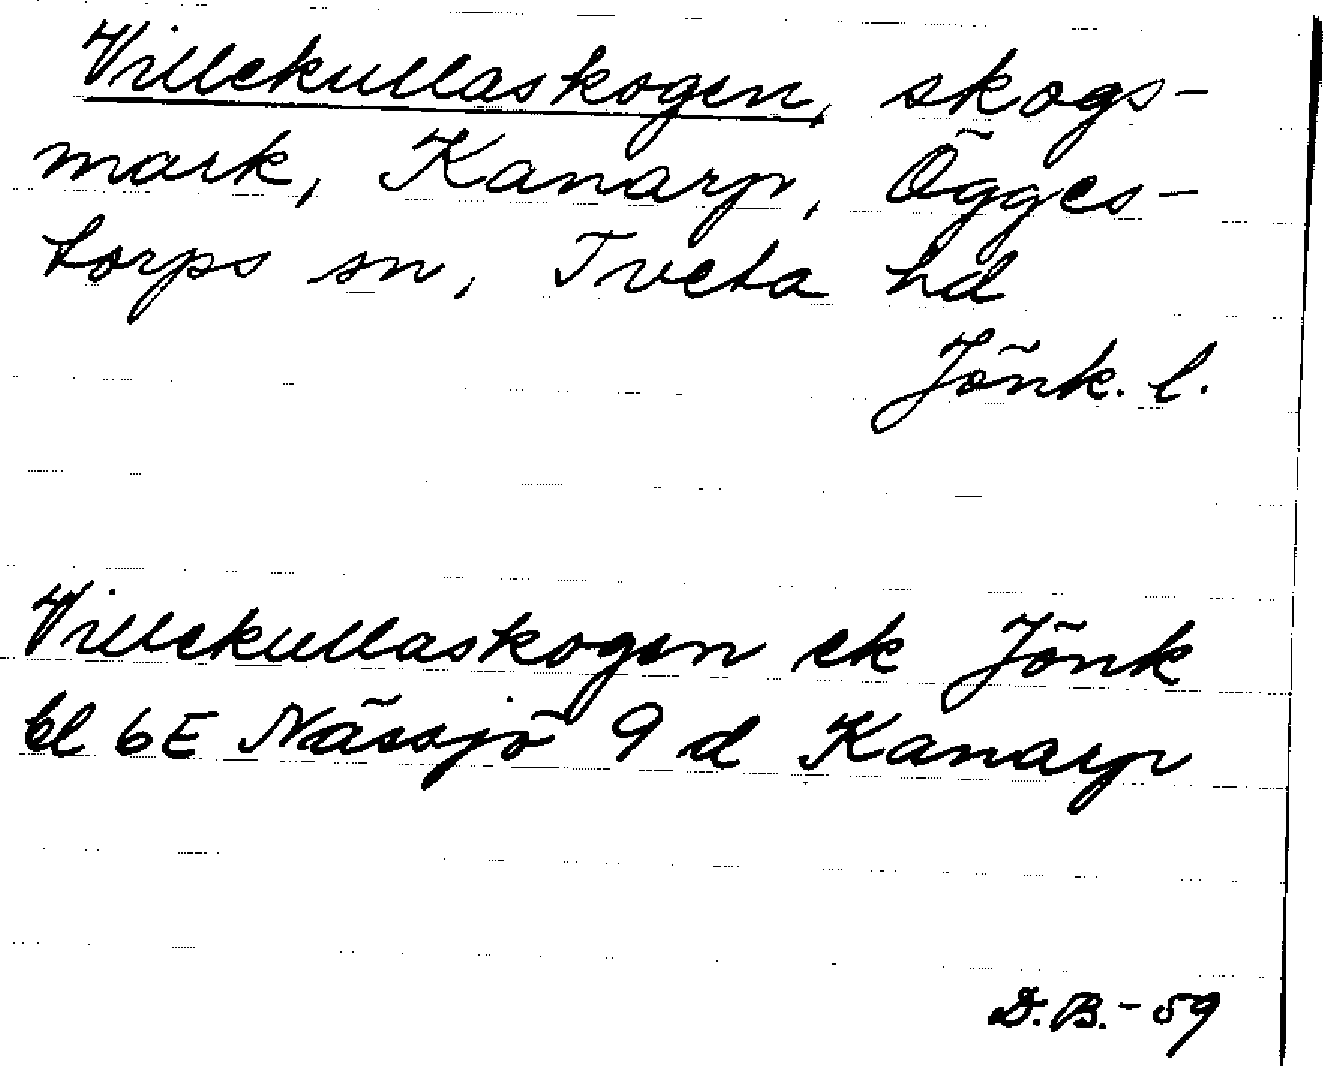 Villekullaskogen, skogs-
mark, Kanarp, Ögges-
torps sn, Tveta hd
Jönk. l.
Villekullaskogen ek Jönk
bl 6E Nässjö 9 d Kanarp
D.B.-59